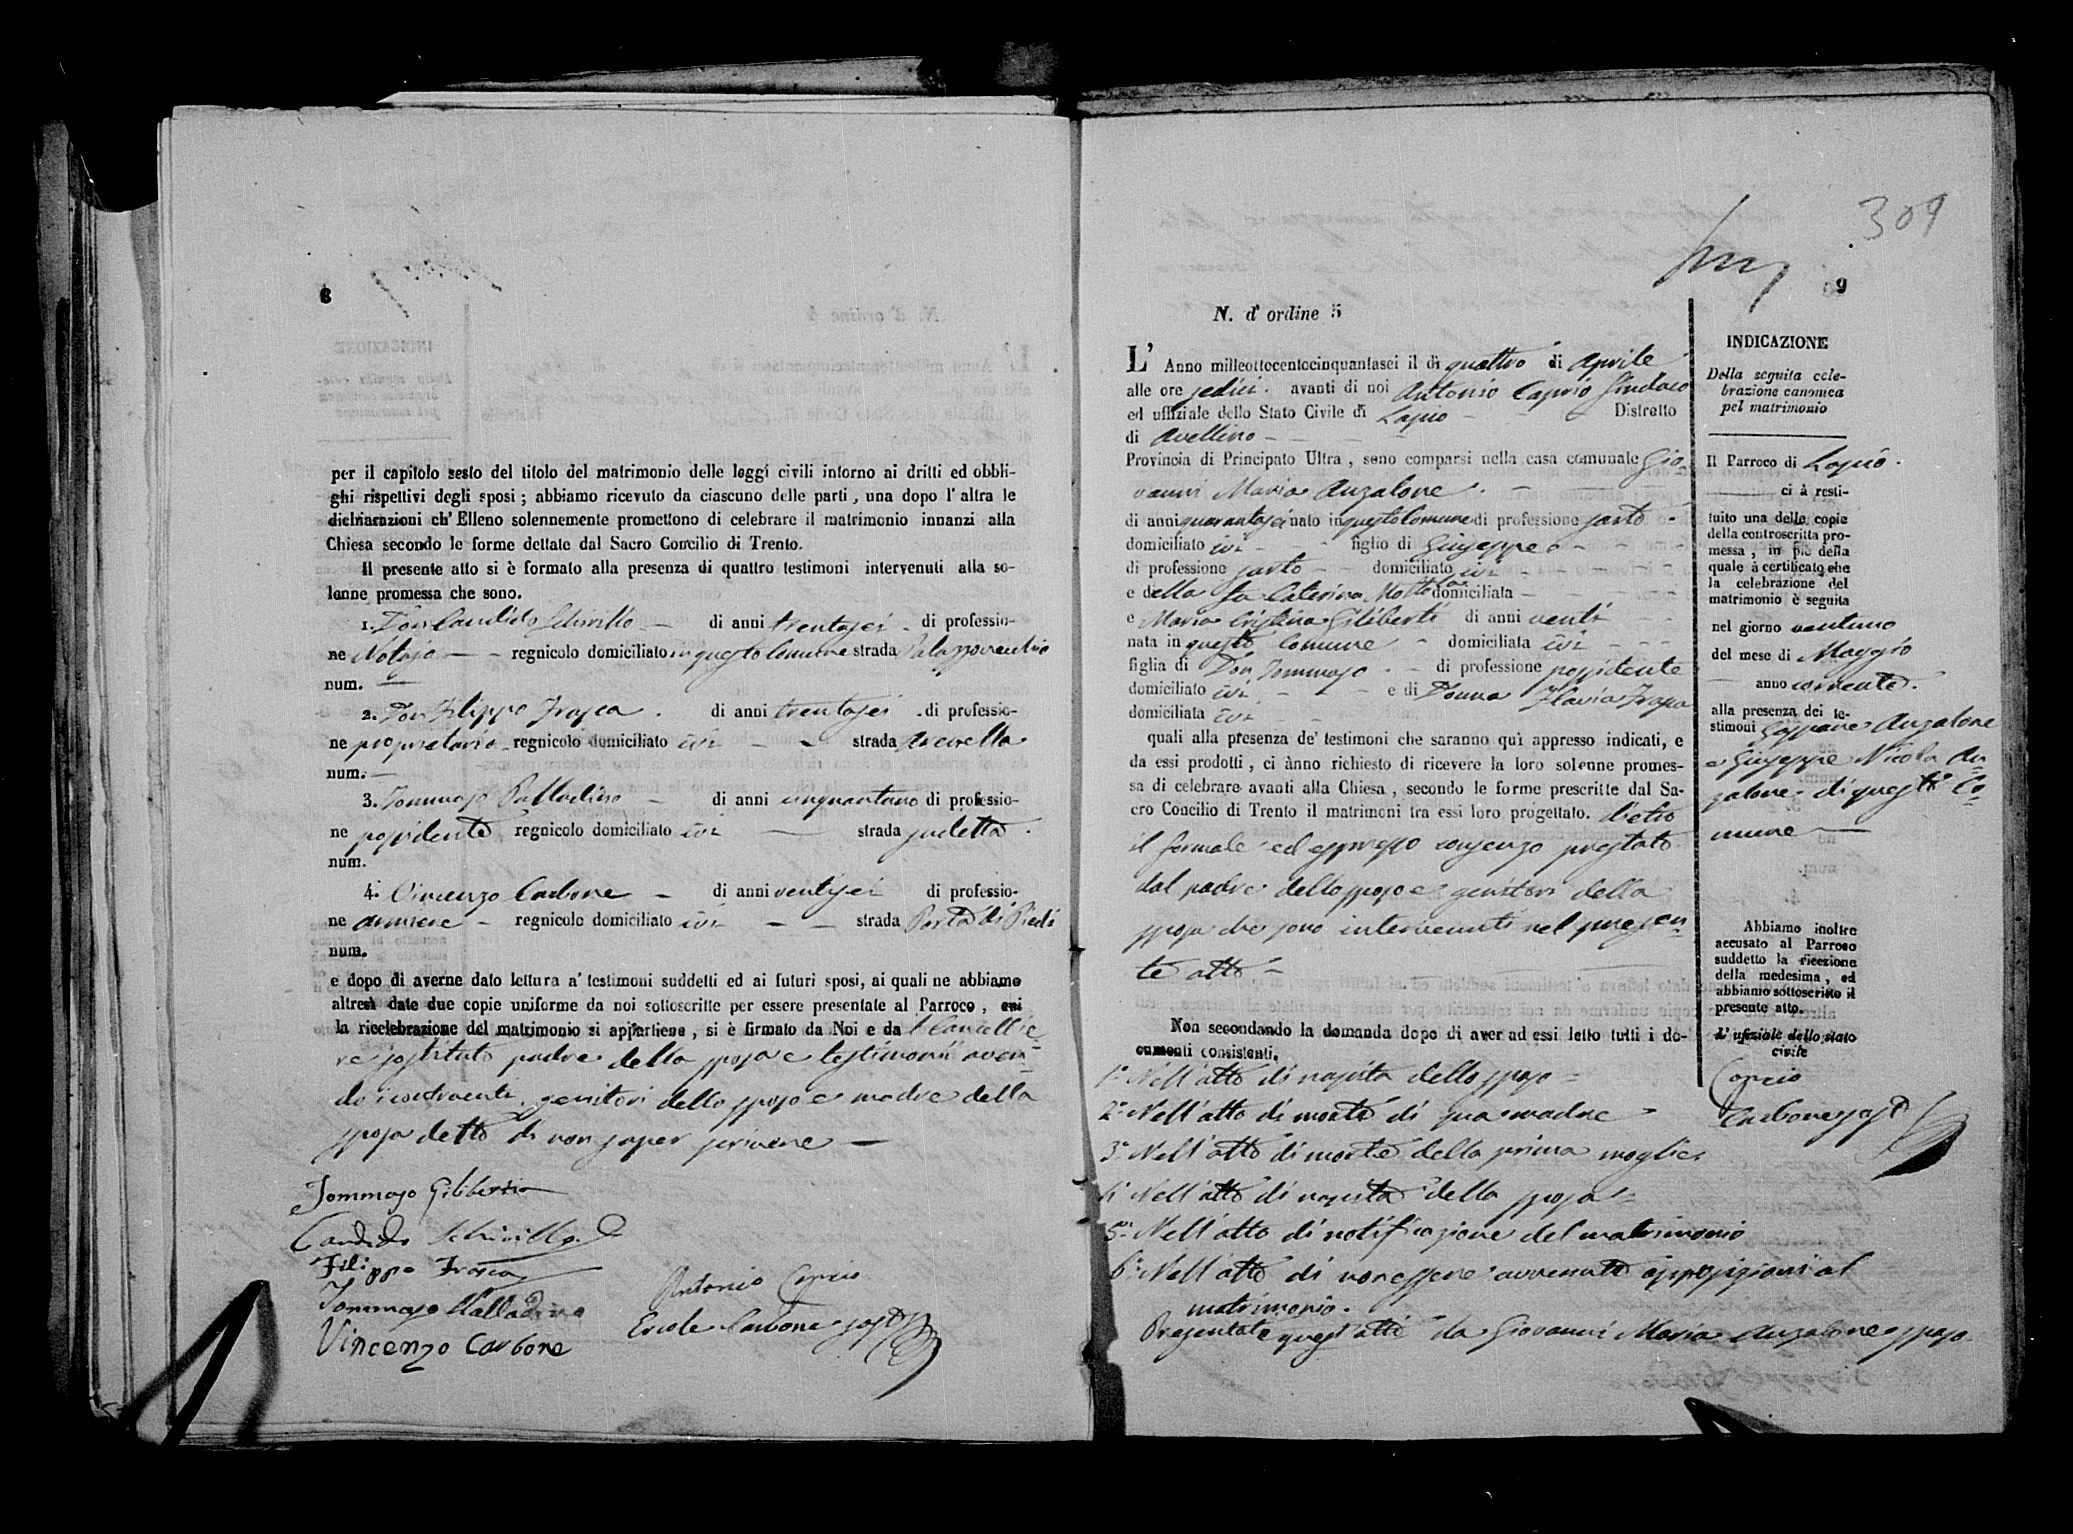 8
per il capitolo sesto del titolo del matrimonio delle leggi civili intorno ai dritti ed obbli-
ghi rispettivi degli sposi ; abbiamo ricevuto da ciascuno delle parti , una dopo l' altra le
dichiarazioni ch' Elleno solennemente promettono di celebrare il matrimonio innanzi alla
Chiesa secondo le forme dettate dal Sacro Concilio di Trento.
Il presente atto si è formato alla presenza di quattro testimoni intervenuti alla so-
lenne promessa che sono.
1. Don Candido Schirillo di anni trentasei di professio-
ne Notajo regnicolo domiciliato in questo Comune strada
num.
2. Don Filippo Frasca di anni trentasei di professio-
ne proprietario regnicolo domiciliato ivi strada
num.
3. Tommaso Palladino di anni cinquantuno di professio-
ne possidente regnicolo domiciliato ivi strada
num.
4. Vincenzo Carbone di anni ventisei di professio-
ne regnicolo domiciliato ivi strada Porta di
num.
e dopo di averne dato lettura a' testimoni suddetti ed ai futuri sposi, ai quali ne abbiamo
altresì date due copie uniforme da noi sottoscritte per essere presentate al Parroco , cui
la ricelebrazione del matrimonio si appartiene , si è firmato da Noi e da l Cancellie-
re sostituto padre della sposa e testimonii aven-
do i contraenti, genitori dello sposo e madre della
sposa detto di non saper scrivere
Tommaso Giliberti
Candido Schirillo
Filippo Frasca
Tommaso Palladino
Vincenzo Carbone
Antonio Caprio
Ercole Carbone sost
309
9
N. d' ordine 5
L' Anno milleottocentocinquantasei il dì quattro di Aprile
alle ore sedici avanti di noi Antonio Caprio Sindaco
ed uffiziale dello Stato Civile di Lapio Distretto
di Avellino
Provincia di Principato Ultra , sono comparsi nella casa comunale Gio-
vanni Maria Anzalone
di anni quarantasei nato in questo Comune di professione sarto
domiciliato ivi figlio di Giuseppe
di professione sarto domiciliato ivi
e della fu Caterina Mottola domiciliata
e Maria Cristina Giliberti di anni venti
nata in questo Comune domiciliata ivi
figlia di Don Tommaso di professione possidente
domiciliato ivi e di Donna Flavia Frasca
domiciliata ivi
quali alla presenza de' testimoni che saranno quì appresso indicati, e
da essi prodotti , ci ànno richiesto di ricevere la loro solenne promes-
sa di celebrare avanti alla Chiesa , secondo le forme prescritte dal Sa-
cro Concilio di Trento il matrimoni tra essi loro progettato. dietro
il formale ed espresso consenzo prestato
dal padre dello sposo e genitori della
sposa che sono intervenuti nel presen-
te atto
Non secondando la domanda dopo di aver ad essi letto tutti i do-
cumenti consistenti.
1° Nell' atto di nascita dello sposo
2° Nell' atto di morte di sua madre
3° Nell' atto di morte della prima moglie
4° Nell' atto di nascita della sposa
5° Nell' atto di notificazione del matrimonio
6° Nell' atto di non essere avvenute opposizioni al
matrimonio.
Presentate quest' atti da Giovanni Maria Anzalone sposo
INDICAZIONE
Della seguita cele-
brazione canonica
pel matrimonio
Il Parroco di Lapio
ci à resti-
tuito una delle copie
della controscritta pro-
messa , in piè della
quale à certificato che
la celebrazione del
matrimonio è seguita
nel giorno ventuno
del mese di Maggio
anno corrente
alla presenza dei te-
stimoni Gaspare Anzalone
e Giuseppe Nicola An-
zalone di questo Co-
mune
Abbiamo inoltre
accusato al Parroco
suddetto la ricezione
della medesima , ed
abbiamo sottoscritto il
presente atto.
L' ufiziale dello stato
civile
Caprio
Carbone sost